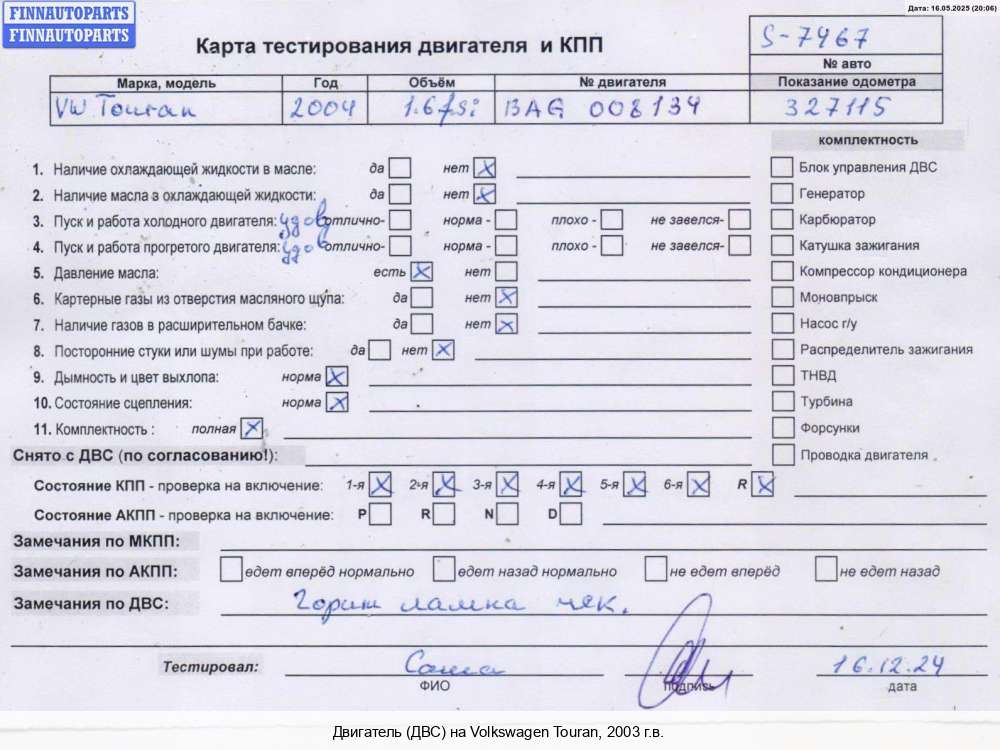 FINNAUTOPARTS
FINNAUTOPARTS
Дата: 16.05.2025 (20:06)
Карта тестирования двигателя и КПП
S-7467
№ авто
Марка, модель Год Объём № двигателя Показание одометра
VW Touran 2004 1.6 fsi BAG 008134 327115
комплектность
1. Наличие охлаждающей жидкости в масле: да нет X
Блок управления ДВС
2. Наличие масла в охлаждающей жидкости: да нет X
Генератор
3. Пуск и работа холодного двигателя: удов отлично- норма - плохо - не завелся-
Карбюратор
4. Пуск и работа прогретого двигателя: удов отлично- норма - плохо - не завелся-
Катушка зажигания
5. Давление масла: есть X нет
Компрессор кондиционера
6. Картерные газы из отверстия масляного щупа: да нет X
Моновпрыск
7. Наличие газов в расширительном бачке: да нет X
Насос г/у
8. Посторонние стуки или шумы при работе: да нет X
Распределитель зажигания
9. Дымность и цвет выхлопа: норма X
ТНВД
10. Состояние сцепления: норма X
Турбина
11. Комплектность : полная X
Форсунки
Снято с ДВС (по согласованию!):
Проводка двигателя
Состояние КПП - проверка на включение: 1-я X 2-я X 3-я X 4-я X 5-я X 6-я X R X
Состояние АКПП - проверка на включение: P R N D
Замечания по МКПП:
Замечания по АКПП: едет вперёд нормально едет назад нормально не едет вперёд не едет назад
Замечания по ДВС: Горит лампа чек.
Тестировал: Саша 16.12.24
ФИО подпись дата
Двигатель (ДВС) на Volkswagen Touran, 2003 г.в.